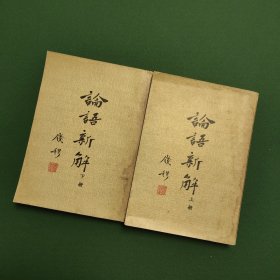 論語新解
下冊
錢穆
論語新解
上冊
錢穆